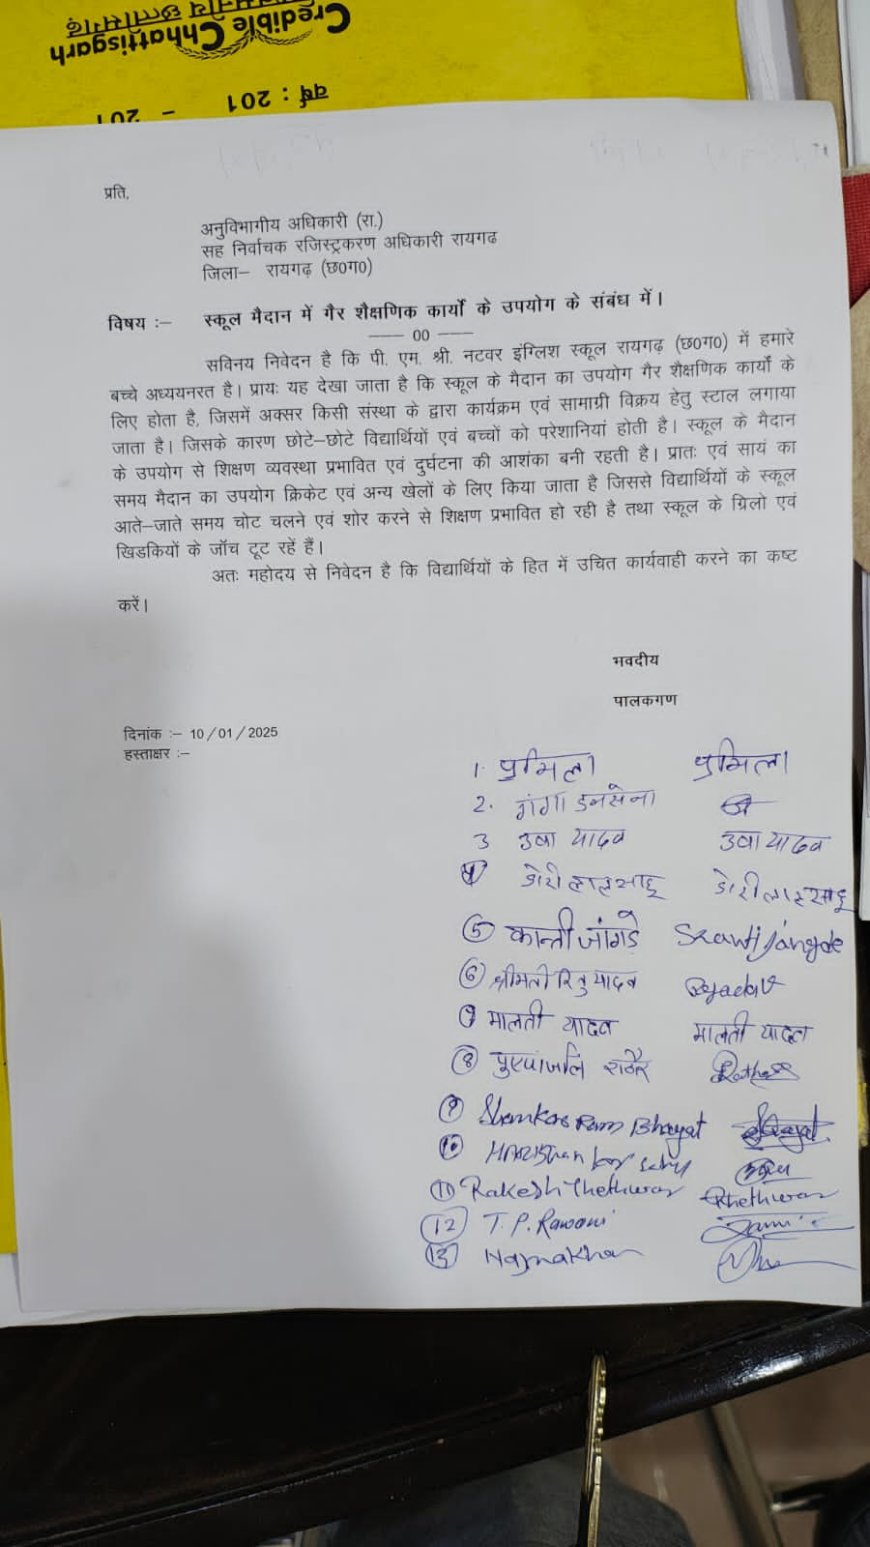 Credible Chhattisgarh
वर्ष : 201 - 201
प्रति,
अनुविभागीय अधिकारी (रा.)
सह निर्वाचक रजिस्ट्रकरण अधिकारी रायगढ
जिला– रायगढ़ (छ0ग0)
विषय :– स्कूल मैदान में गैर शैक्षणिक कार्यो के उपयोग के संबंध में।
—— 00 ——
सविनय निवेदन है कि पी. एम. श्री. नटवर इंग्लिश स्कूल रायगढ़ (छ0ग0) में हमारे
बच्चे अध्ययनरत है। प्रायः यह देखा जाता है कि स्कूल के मैदान का उपयोग गैर शैक्षणिक कार्यों के
लिए होता है, जिसमें अक्सर किसी संस्था के द्वारा कार्यक्रम एवं सामाग्री विक्रय हेतु स्टाल लगाया
जाता है। जिसके कारण छोटे–छोटे विद्यार्थियों एवं बच्चों को परेशानियां होती है। स्कूल के मैदान
के उपयोग से शिक्षण व्यवस्था प्रभावित एवं दुर्घटना की आशंका बनी रहती है। प्रातः एवं सायं का
समय मैदान का उपयोग क्रिकेट एवं अन्य खेलों के लिए किया जाता है जिससे विद्यार्थियों के स्कूल
आते–जाते समय चोट चलने एवं शोर करने से शिक्षण प्रभावित हो रही है तथा स्कूल के ग्रिलो एवं
खिडकियों के जॉच टूट रहें हैं।
अतः महोदय से निवेदन है कि विद्यार्थियों के हित में उचित कार्यवाही करने का कष्ट
करें।
भवदीय
पालकगण
दिनांक :– 10/01/2025
हस्ताक्षर :–
1. प्रुमिला प्रुमिला
2. गंगा डनसेना
3 उषा यादव उषा यादव
4 डोरी लाल साहू डोरी लाल साहू
5 कान्ती जांगडे Jangde
6 श्रीमती रितु यादव Ryadav
7 मालती यादव मालती यादव
8 पुष्पांजलि राठौर
9 Shankar Ram Bhagat
10
11 Rakesh Thethwar Rthethwar
12 T. P. Rawani
13 Najmakhan